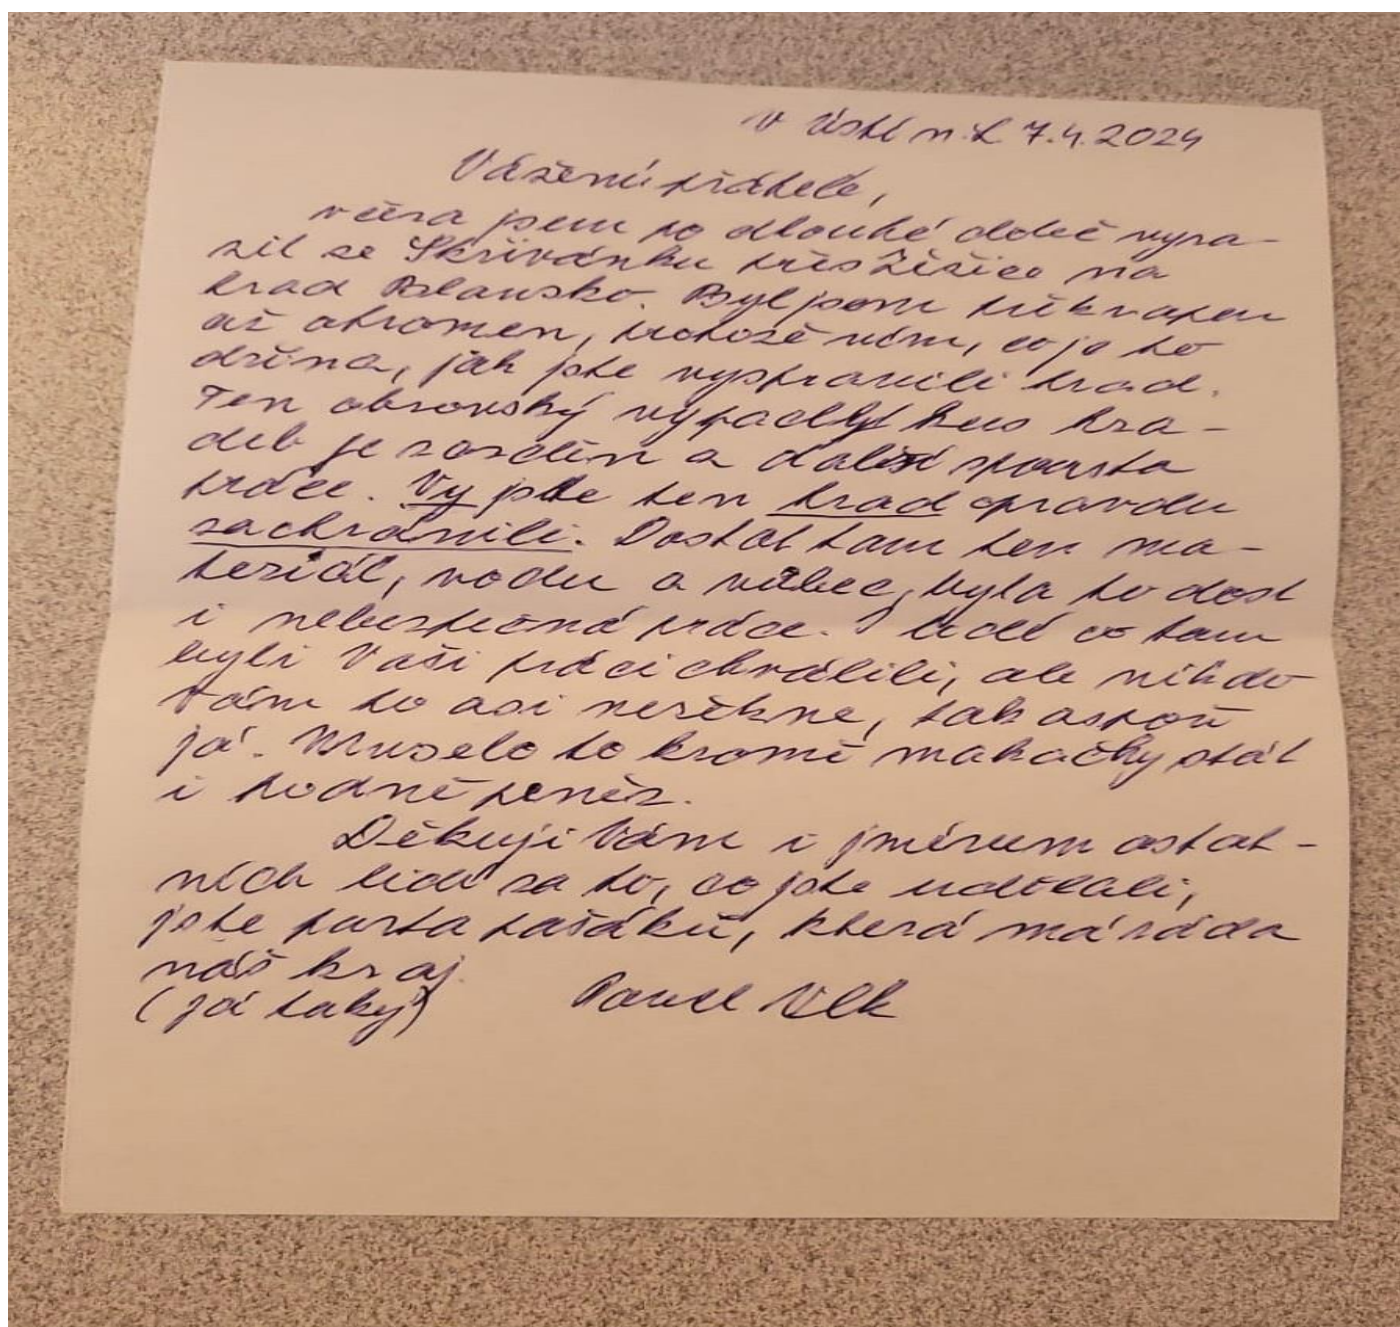 v Ústí n.L 7.4.2024
Vážení přátelé,
včera jsem po dlouhé době vyra-
zil ze Skřivánku přes Žežice na
hrad Blansko. Byl jsem překvapen
až ohromen, protože vím, co je to
dřina, jak jste vyspravili hrad.
Ten obrovský vypadlý kus hra-
deb je zazděn a další spousta
práce. Vy jste ten hrad opravdu
zachránili. Dostat tam ten ma-
teriál, vodu a vůbec, byla to dost
i nebezpečná práce. I lidé co tam
byli Vaši práci chválili, ale nikdo
Vám to asi neřekne, tak aspoň
já. Muselo to kromě makačky stát
i hodně peněz.
Děkuji Vám i jménem ostat-
ních lidí za to, co jste udělali,
jste parta pašáků, která má ráda
náš kraj.
(já taky) Pavel Vlk